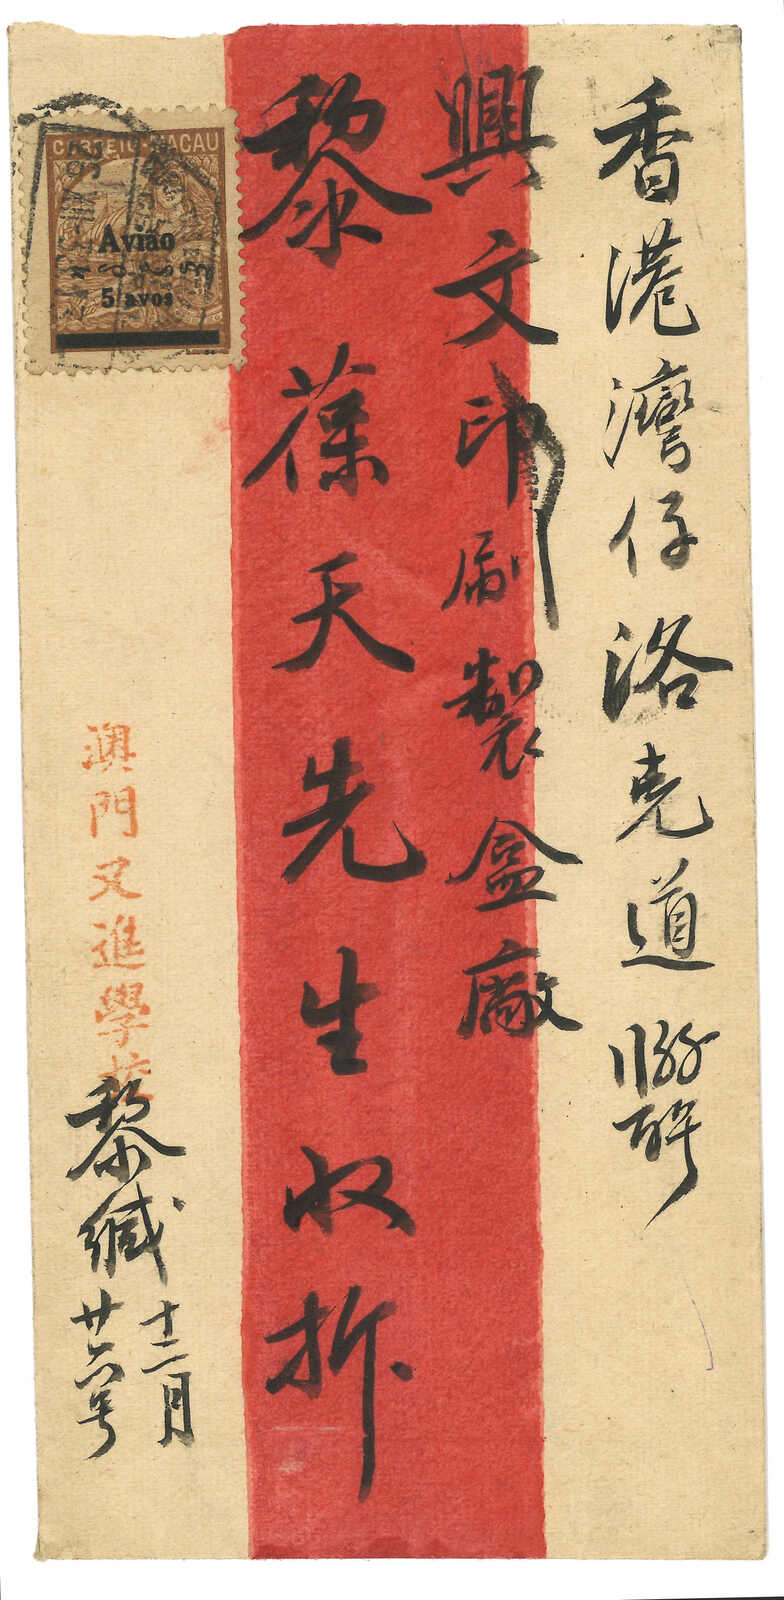 香港灣仔洛克道
興文印刷製盒廠
黎葆天先生收拆
CORREIO MACAU
Avião
5 avos
澳門又進學校
黎緘
十二月
廿六号